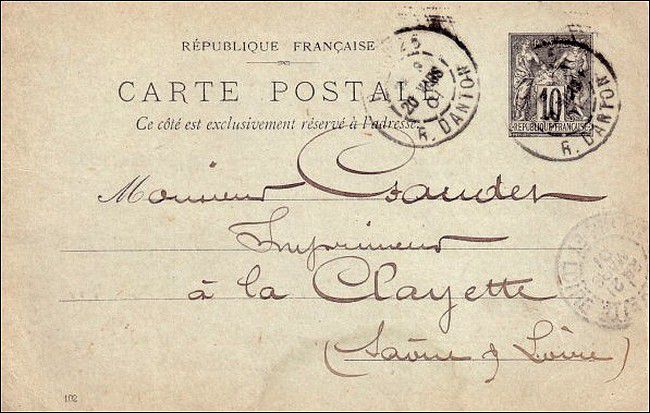 RÉPUBLIQUE FRANÇAISE
CARTE POSTALE
Ce côté est exclusivement réservé à l'adresse.
25
20 MARS
01
R. DANTON
10
REPUBLIQUE FRANÇAISE
R. DANTON
Monsieur
Imprimeur
à la Clayette
(Saône & Loire)
102